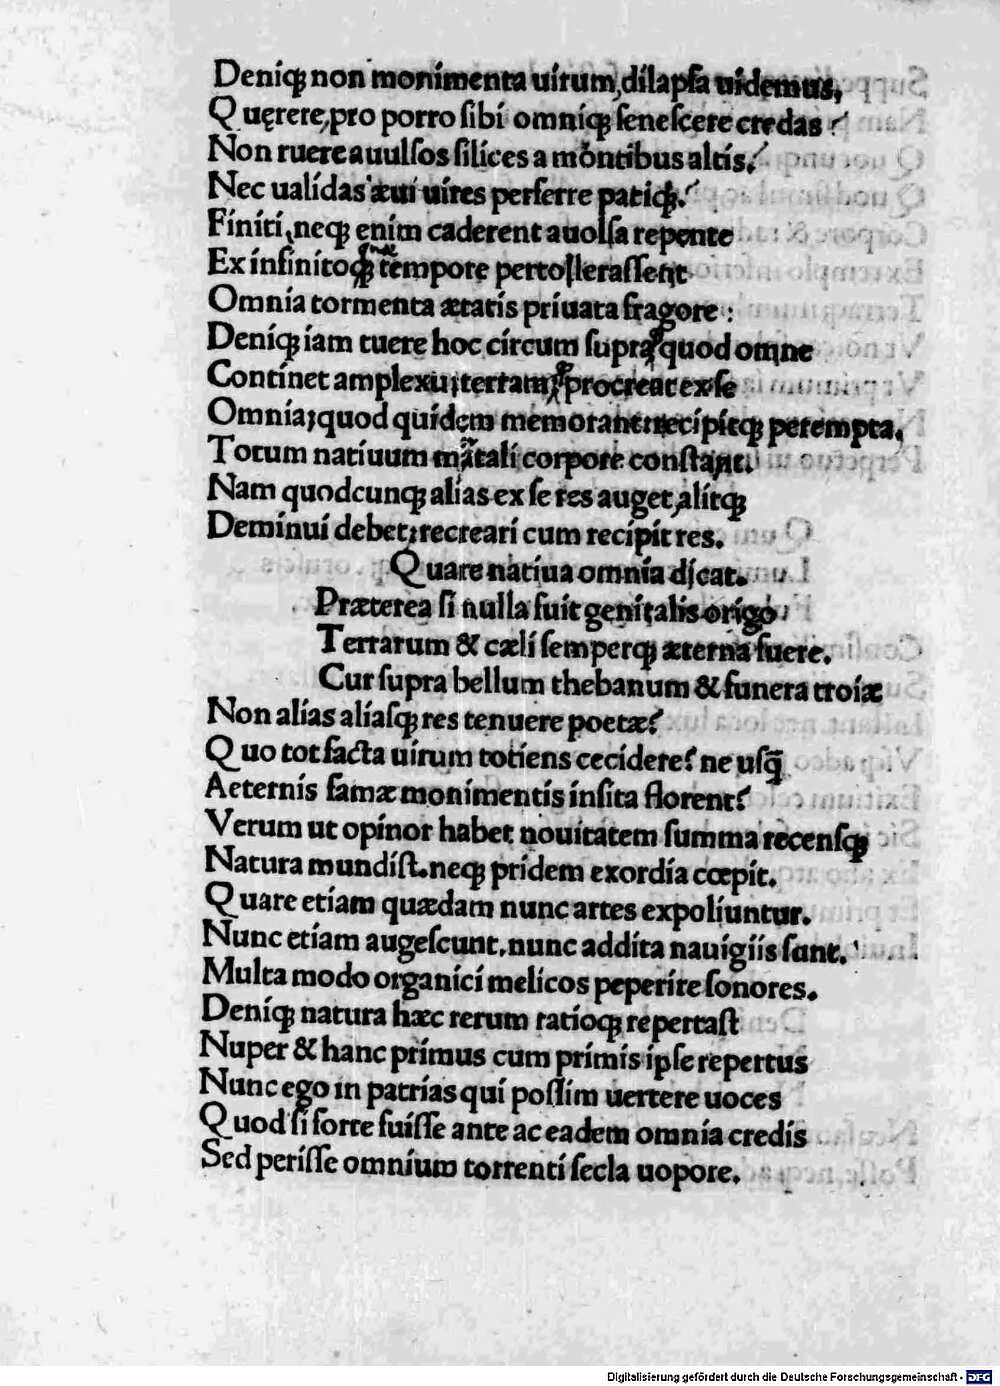 Deniqꝫ non monimenta uirum, dilapsa uidemus,
Quęrere, pro porro sibi omniqꝫ senescere credas?
Non ruere auulsos silices a montibus altis?
Nec ualidas æui uires perferre patiqꝫ?
Finiti, neqꝫ enim caderent auolsa repente
Ex infinito qꝫ tẽmpore pertollerassent
Omnia tormenta ætatis priuata fragore:
Deniqꝫ iam tuere hoc circum supraqꝫ quod omne
Continet amplexu; terram; procreat ex se
Omnia; quod quidem memorant recipitqꝫ perempta,
Totum natiuum mãtali corpore constant.
Nam quodcunqꝫ alias ex se res auget, alitqꝫ
Deminui debet; recreari cum recipit res.
Quare natiua omnia dicat.
Præterea si nulla fuit genitalis origo
Terrarum & cæli semperqꝫ æterna fuere.
Cur supra bellum thebanum & funera troiæ
Non alias aliasqꝫ res tenuere poetæ?
Quo tot facta uirum totiens cecidere? ne usq̃
Aeternis famæ monimentis insita florent?
Verum ut opinor habet nouitatem summa recensqꝫ
Natura mundist. neqꝫ pridem exordia cœpit.
Quare etiam quædam nunc artes expoliuntur.
Nunc etiam augescunt, nunc addita nauigiis sunt.
Multa modo organici melicos peperire sonores.
Deniqꝫ natura hæc rerum ratioqꝫ repertast
Nuper & hanc primus cum primis ipse repertus
Nunc ego in patrias qui possim uertere uoces
Quod si forte fuisse ante ac eadem omnia credis
Sed perisse omnium torrenti secla uopore.
Digitalisierung gefördert durch die Deutsche Forschungsgemeinschaft - DFG